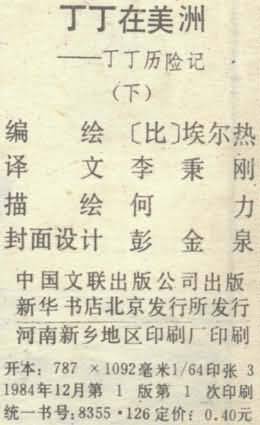 丁丁在美洲
——丁丁历险记
（下）
编 绘 〔比〕埃尔热
译 文 李 秉 刚
描 绘 何 力
封面设计 彭 金 泉
中国文联出版公司出版
新华书店北京发行所发行
河南新乡地区印刷厂印刷
开本：787 ×1092毫米1/64印张 3
1984年12月第 1 版第 1 次印刷
统一书号：8355·126定价：0.40元